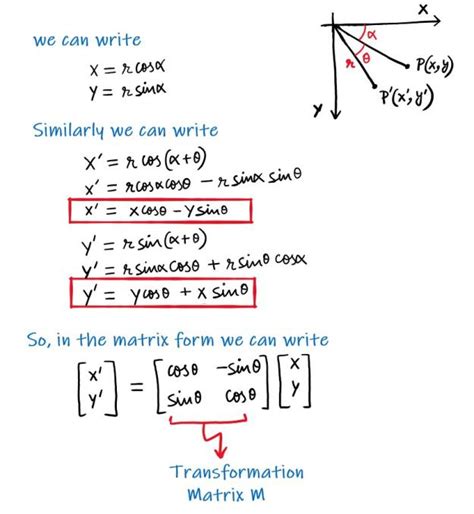 we can write
x = r cosα
y = r sinα
Similarly we can write
x' = r cos(α+θ)
x' = r cosα cosθ - r sinα sinθ
x' = x cosθ - y sinθ
y' = r sin(α+θ)
y' = r sinα cosθ + r sinθ cosα
y' = y cosθ + x sinθ
So, in the matrix form we can write
[x' y'] = [cosθ -sinθ sinθ cosθ] [x y]
Transformation
Matrix M
x
α
r θ
P(x,y)
P'(x',y')
y